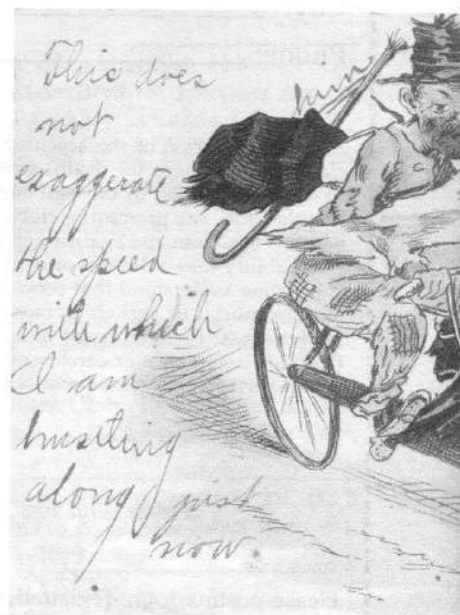 This does
not
exaggerate
the speed
with which
I am
hustling
along just
now.